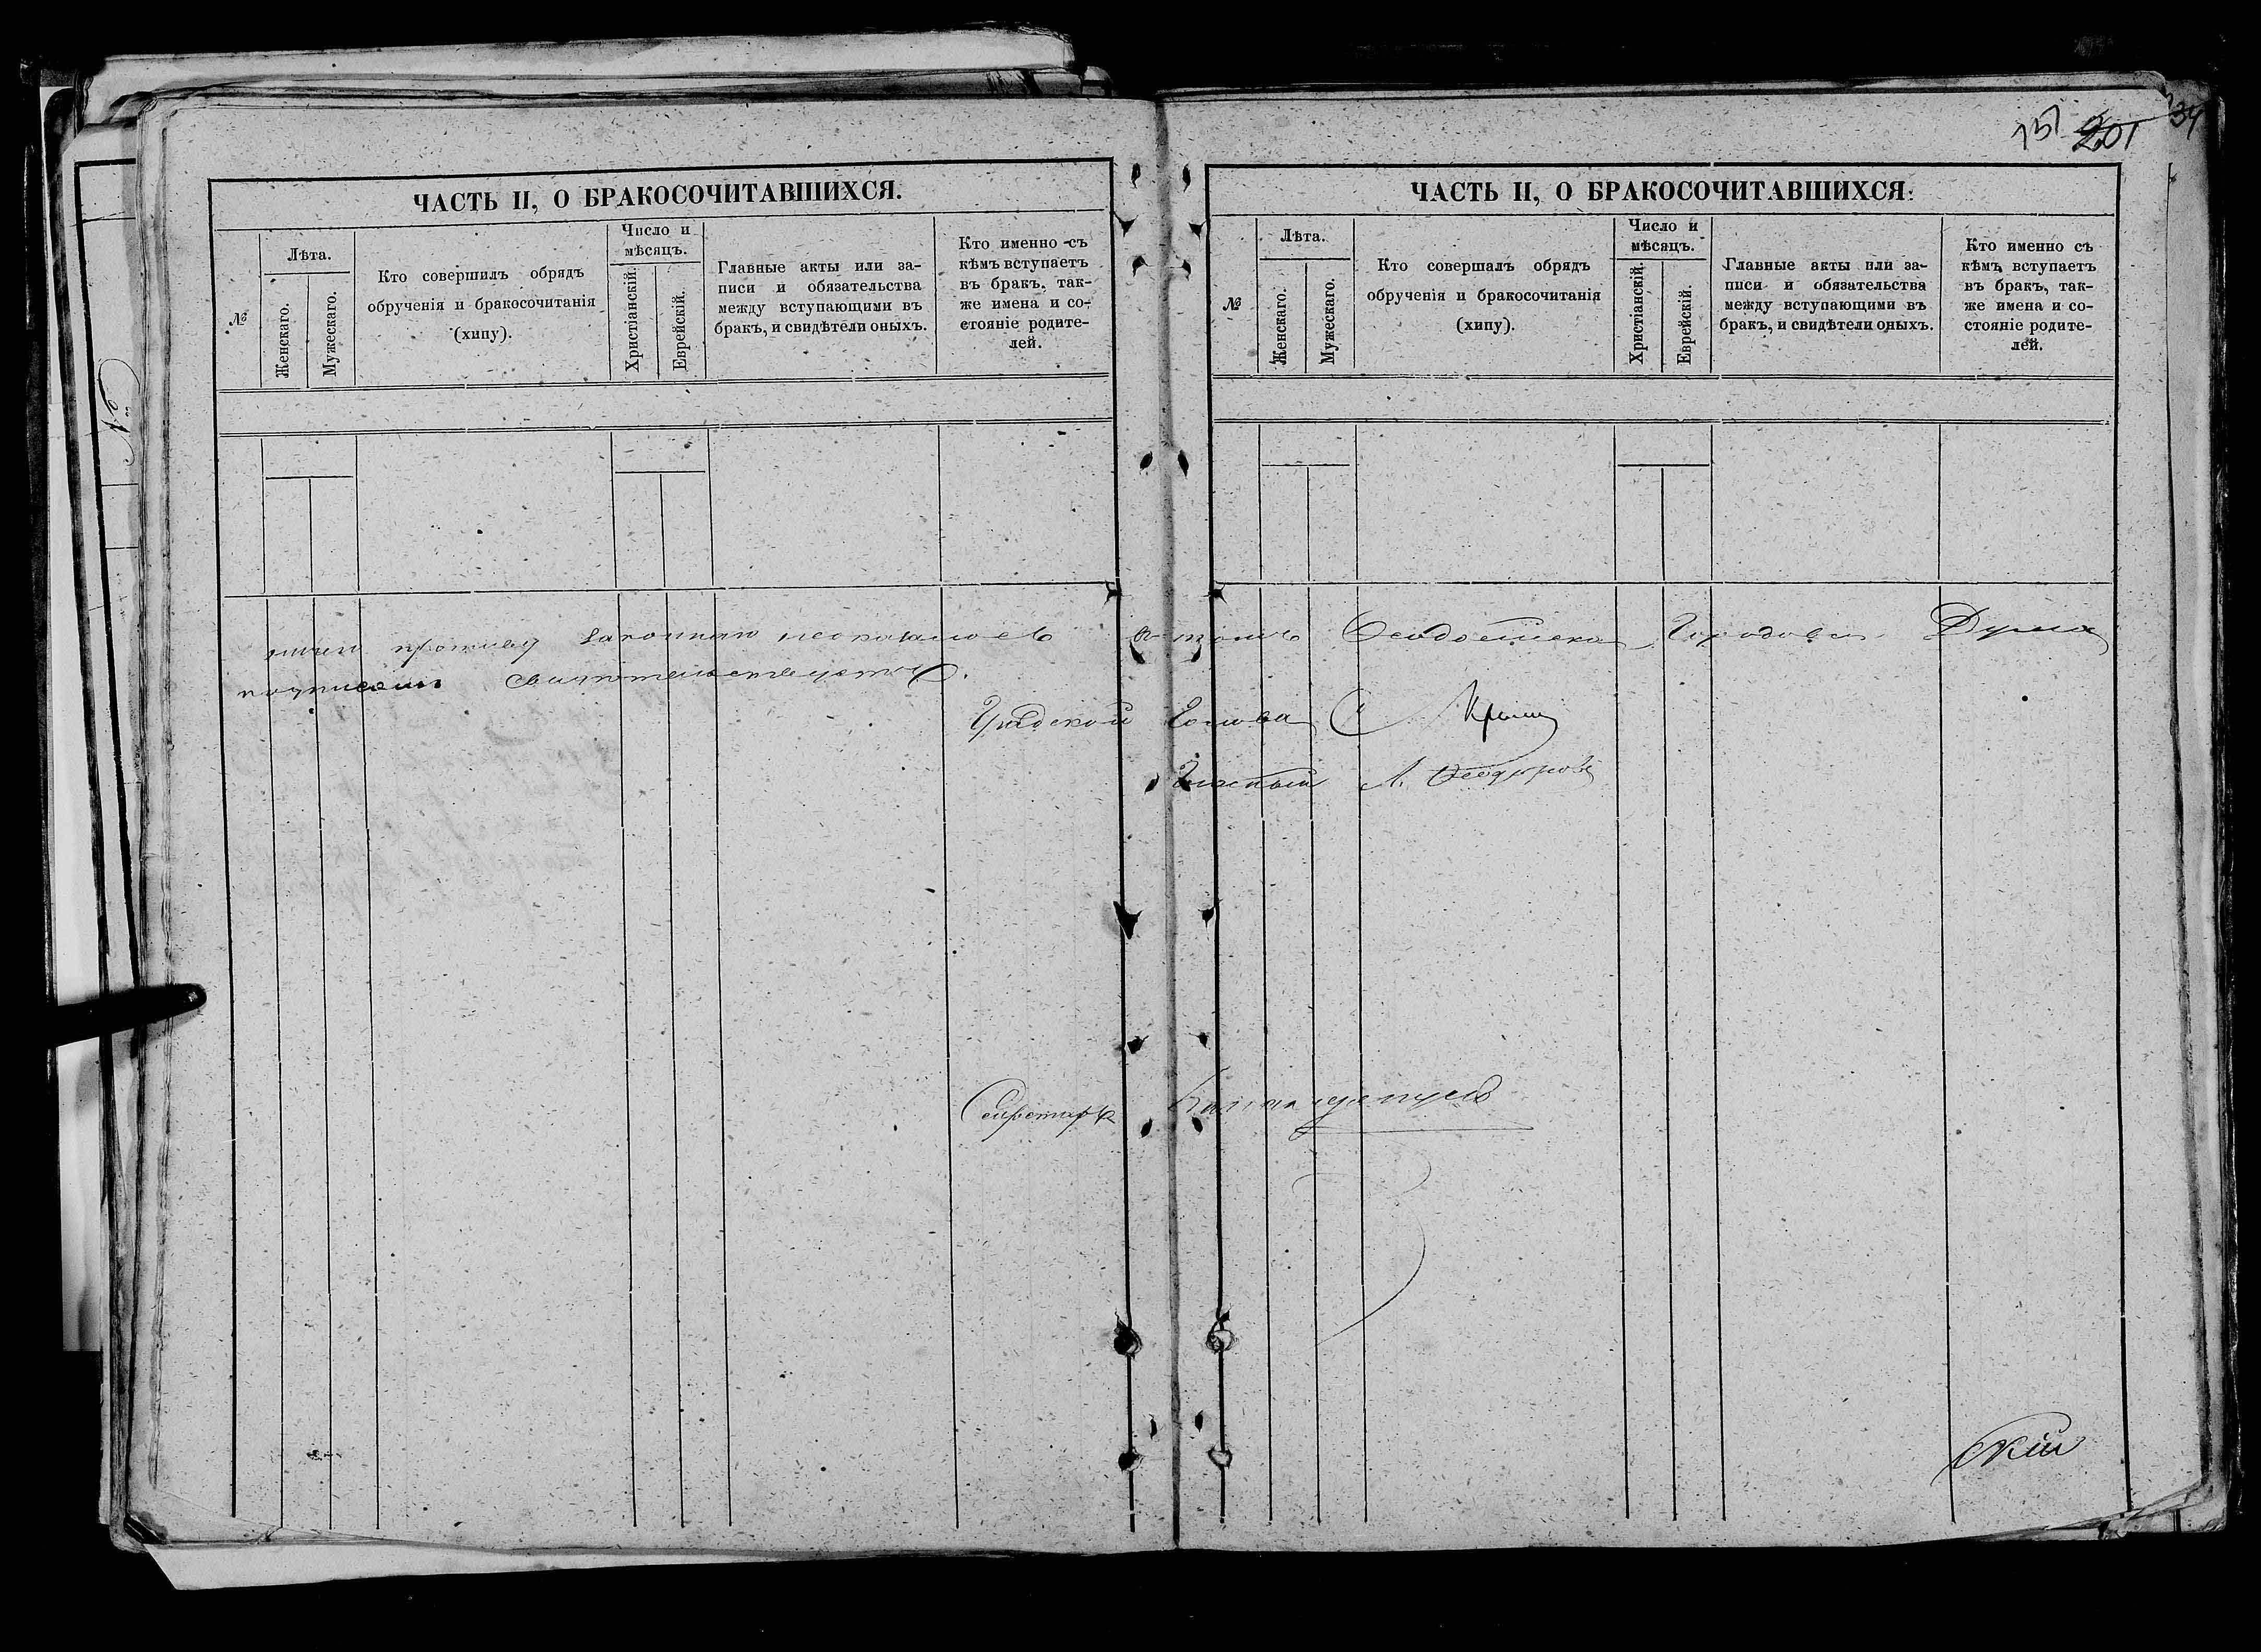 157 201 34
ЧАСТЬ II, О БРАКОСОЧИТАВШИХСЯ.
№
Лѣта.
Женскаго.
Мужескаго.
Кто совершилъ обрядъ
обрученія и бракосочитанія
(хипу).
Число и
мѣсяцъ.
Христіанскій.
Еврейскій.
Главные акты или за-
писи и обязательства
между вступающими въ
бракъ, и свидѣтели оныхъ.
Кто именно съ
кѣмъ вступаетъ
въ бракъ, так-
же имена и со-
стояніе родите-
лей.
ЧАСТЬ II, О БРАКОСОЧИТАВШИХСЯ.
№
Лѣта.
Женскаго.
Мужескаго.
Кто совершалъ обрядъ
обрученія и бракосочитанія
(хипу).
Число и
мѣсяцъ.
Христіанскій.
Еврейскій.
Главные акты или за-
писи и обязательства
между вступающими въ
бракъ, и свидѣтели оныхъ.
Кто именно съ
кѣмъ вступаетъ
въ бракъ, так-
же имена и со-
стояніе родите-
лей.
противу неоказалось въ томъ Ѳеодосійская Городовая Дума
свидѣтельствуетъ.
Градской Голова
Гласный
Секретарь
скій